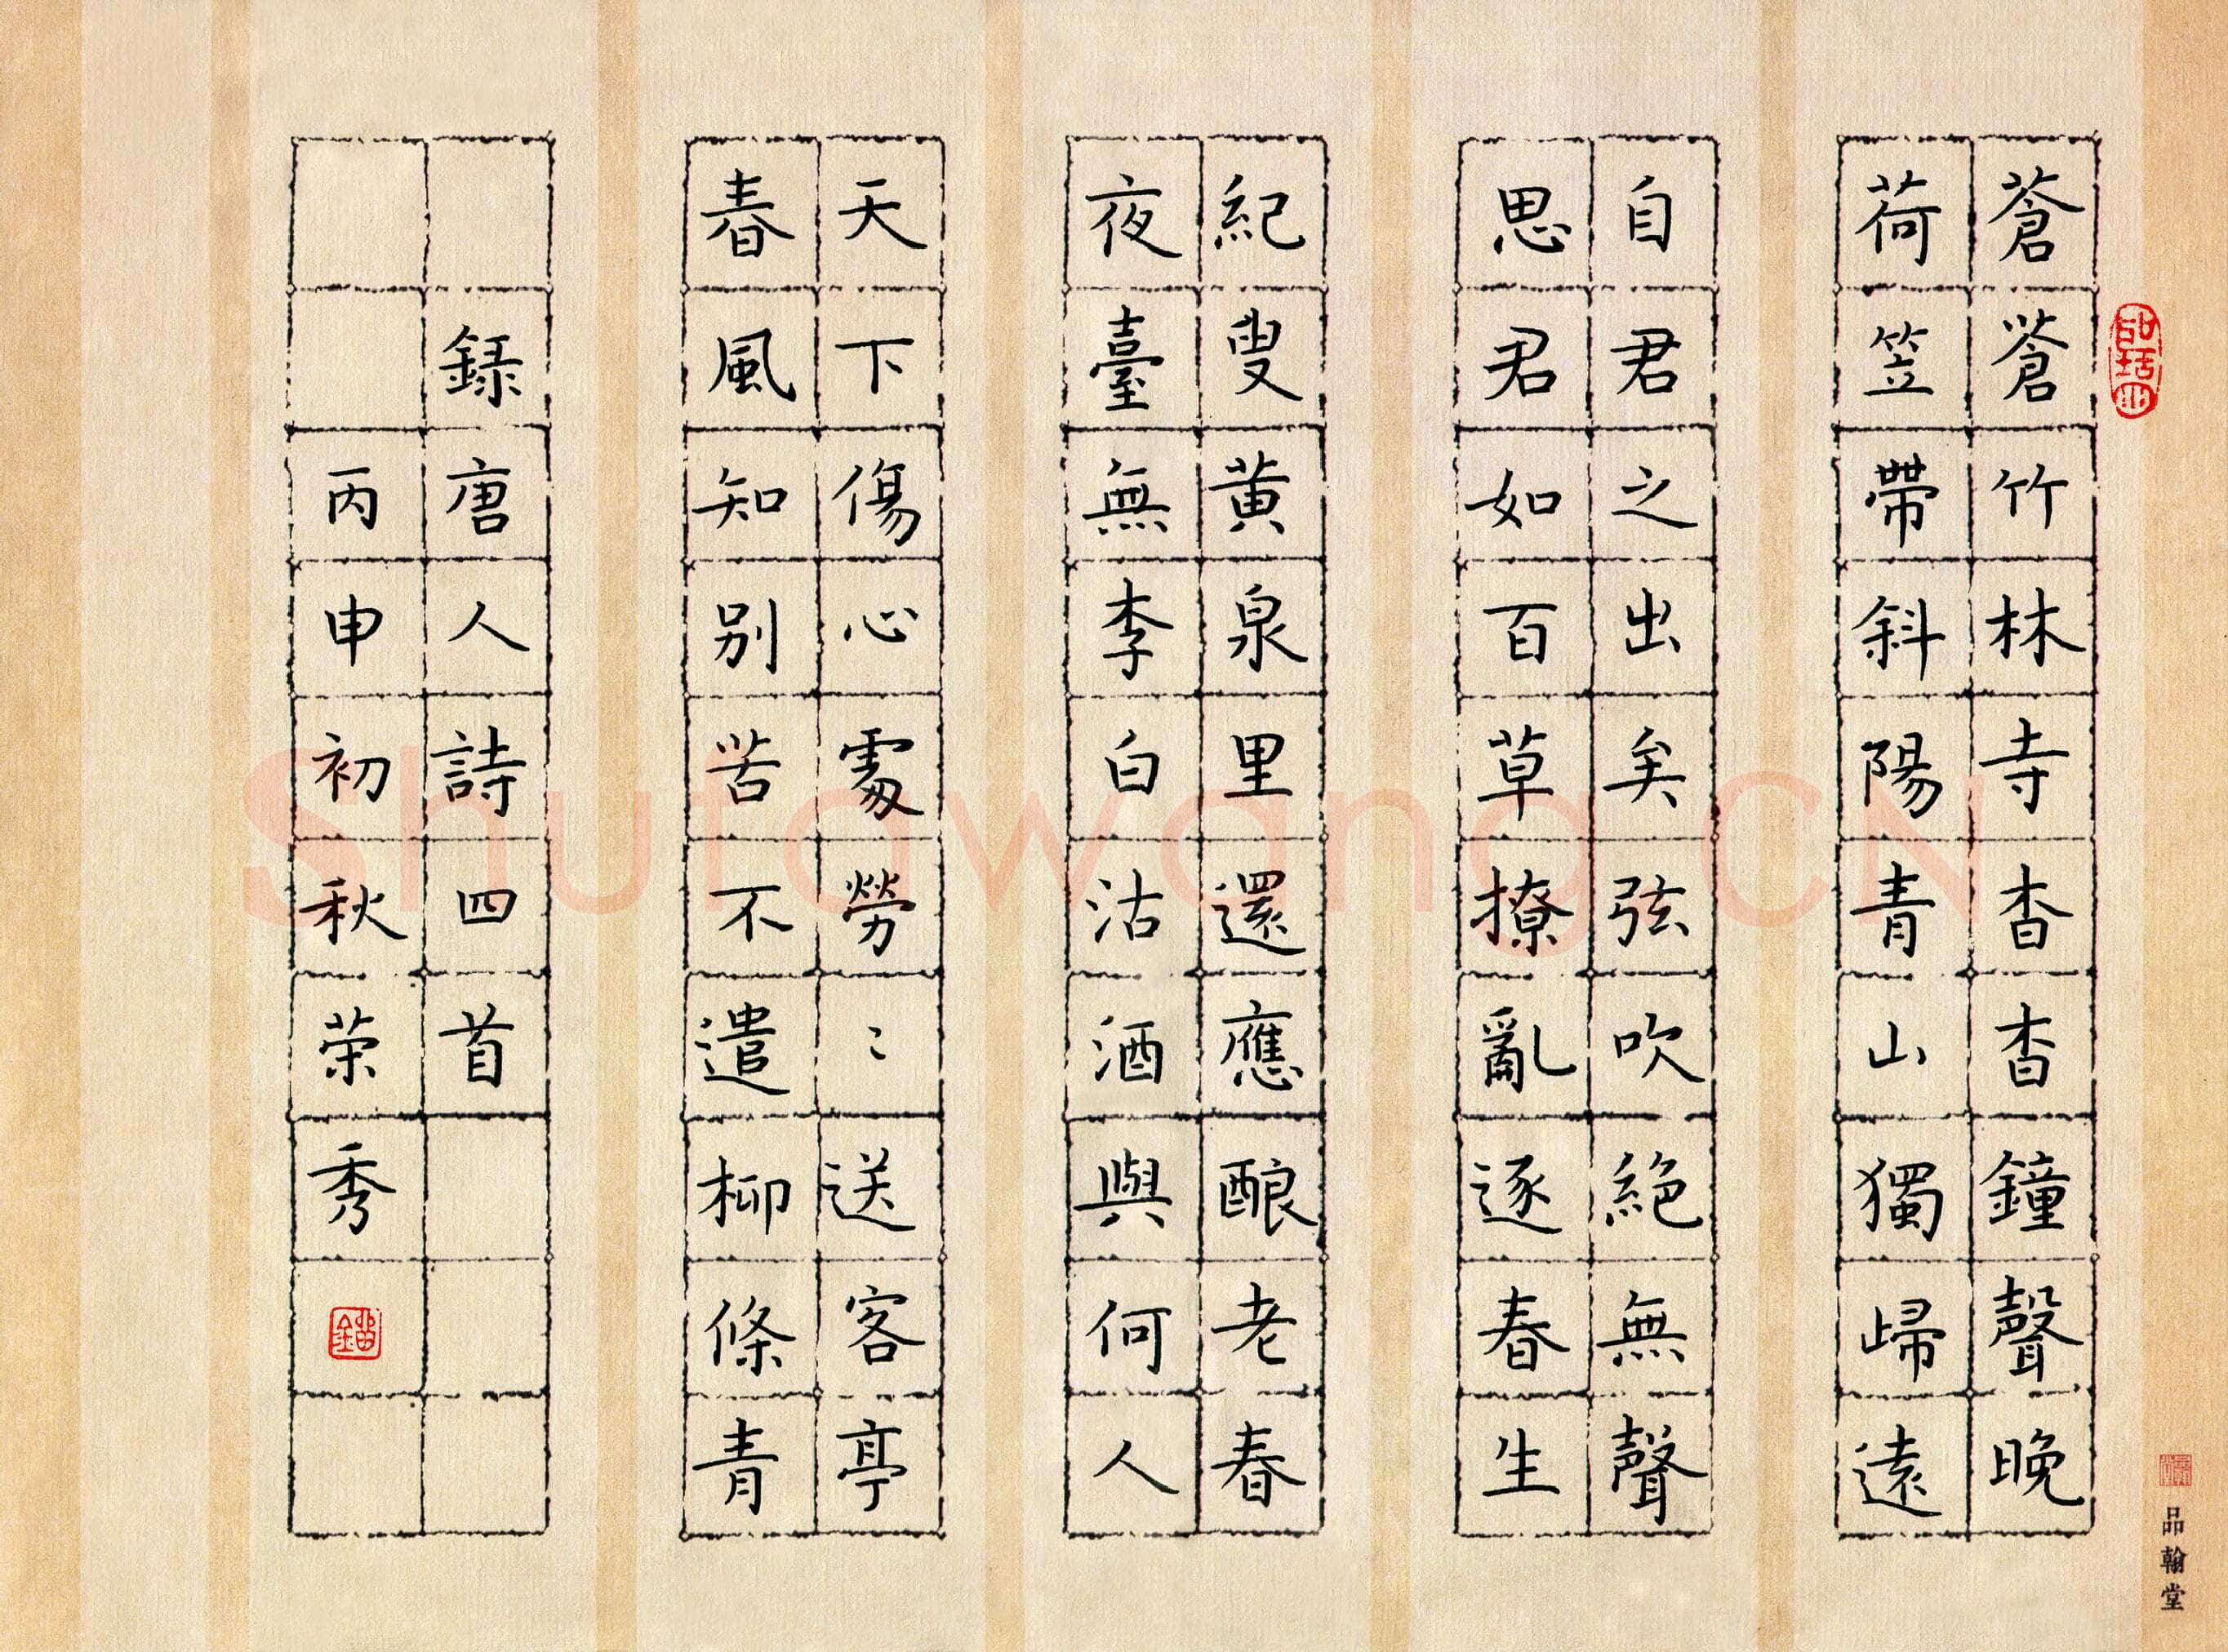 蒼蒼竹林寺杳杳鐘聲晚
荷笠帶斜陽青山獨歸遠
自君之出矣弦吹絕無聲
思君如百草撩亂逐春生
紀叟黃泉里還應釀老春
夜臺無李白沽酒與何人
天下傷心處勞〻送客亭
春風知別苦不遣柳條青
録唐人詩四首
丙申初秋荣秀
品翰堂
Shufawang.CN